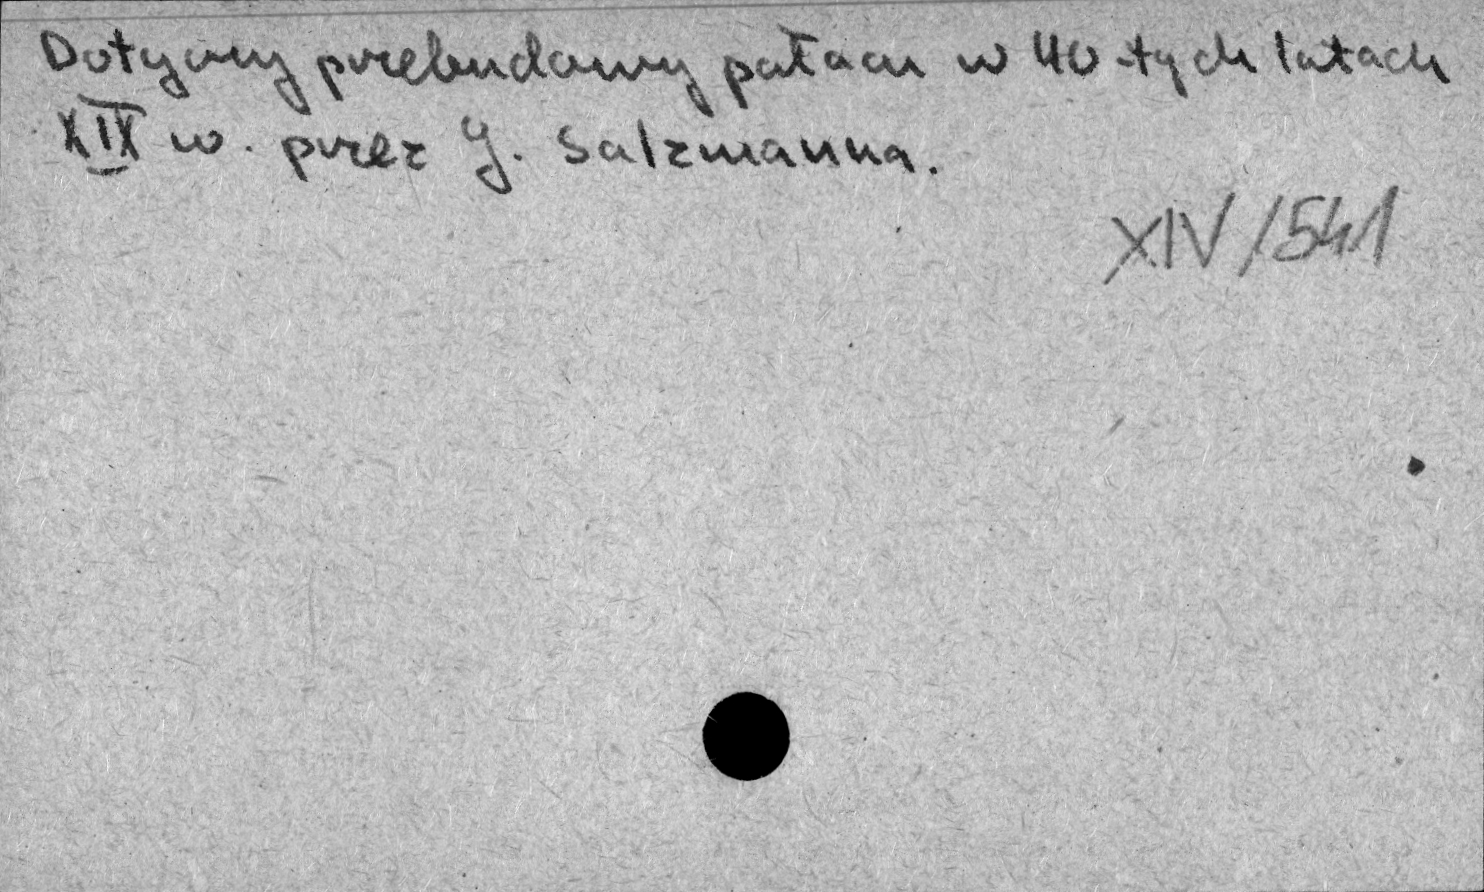 Dotyczy przebudowy pałacu w 40-tych latach
XIX w. przez J. Salzmanna.
XIV/541